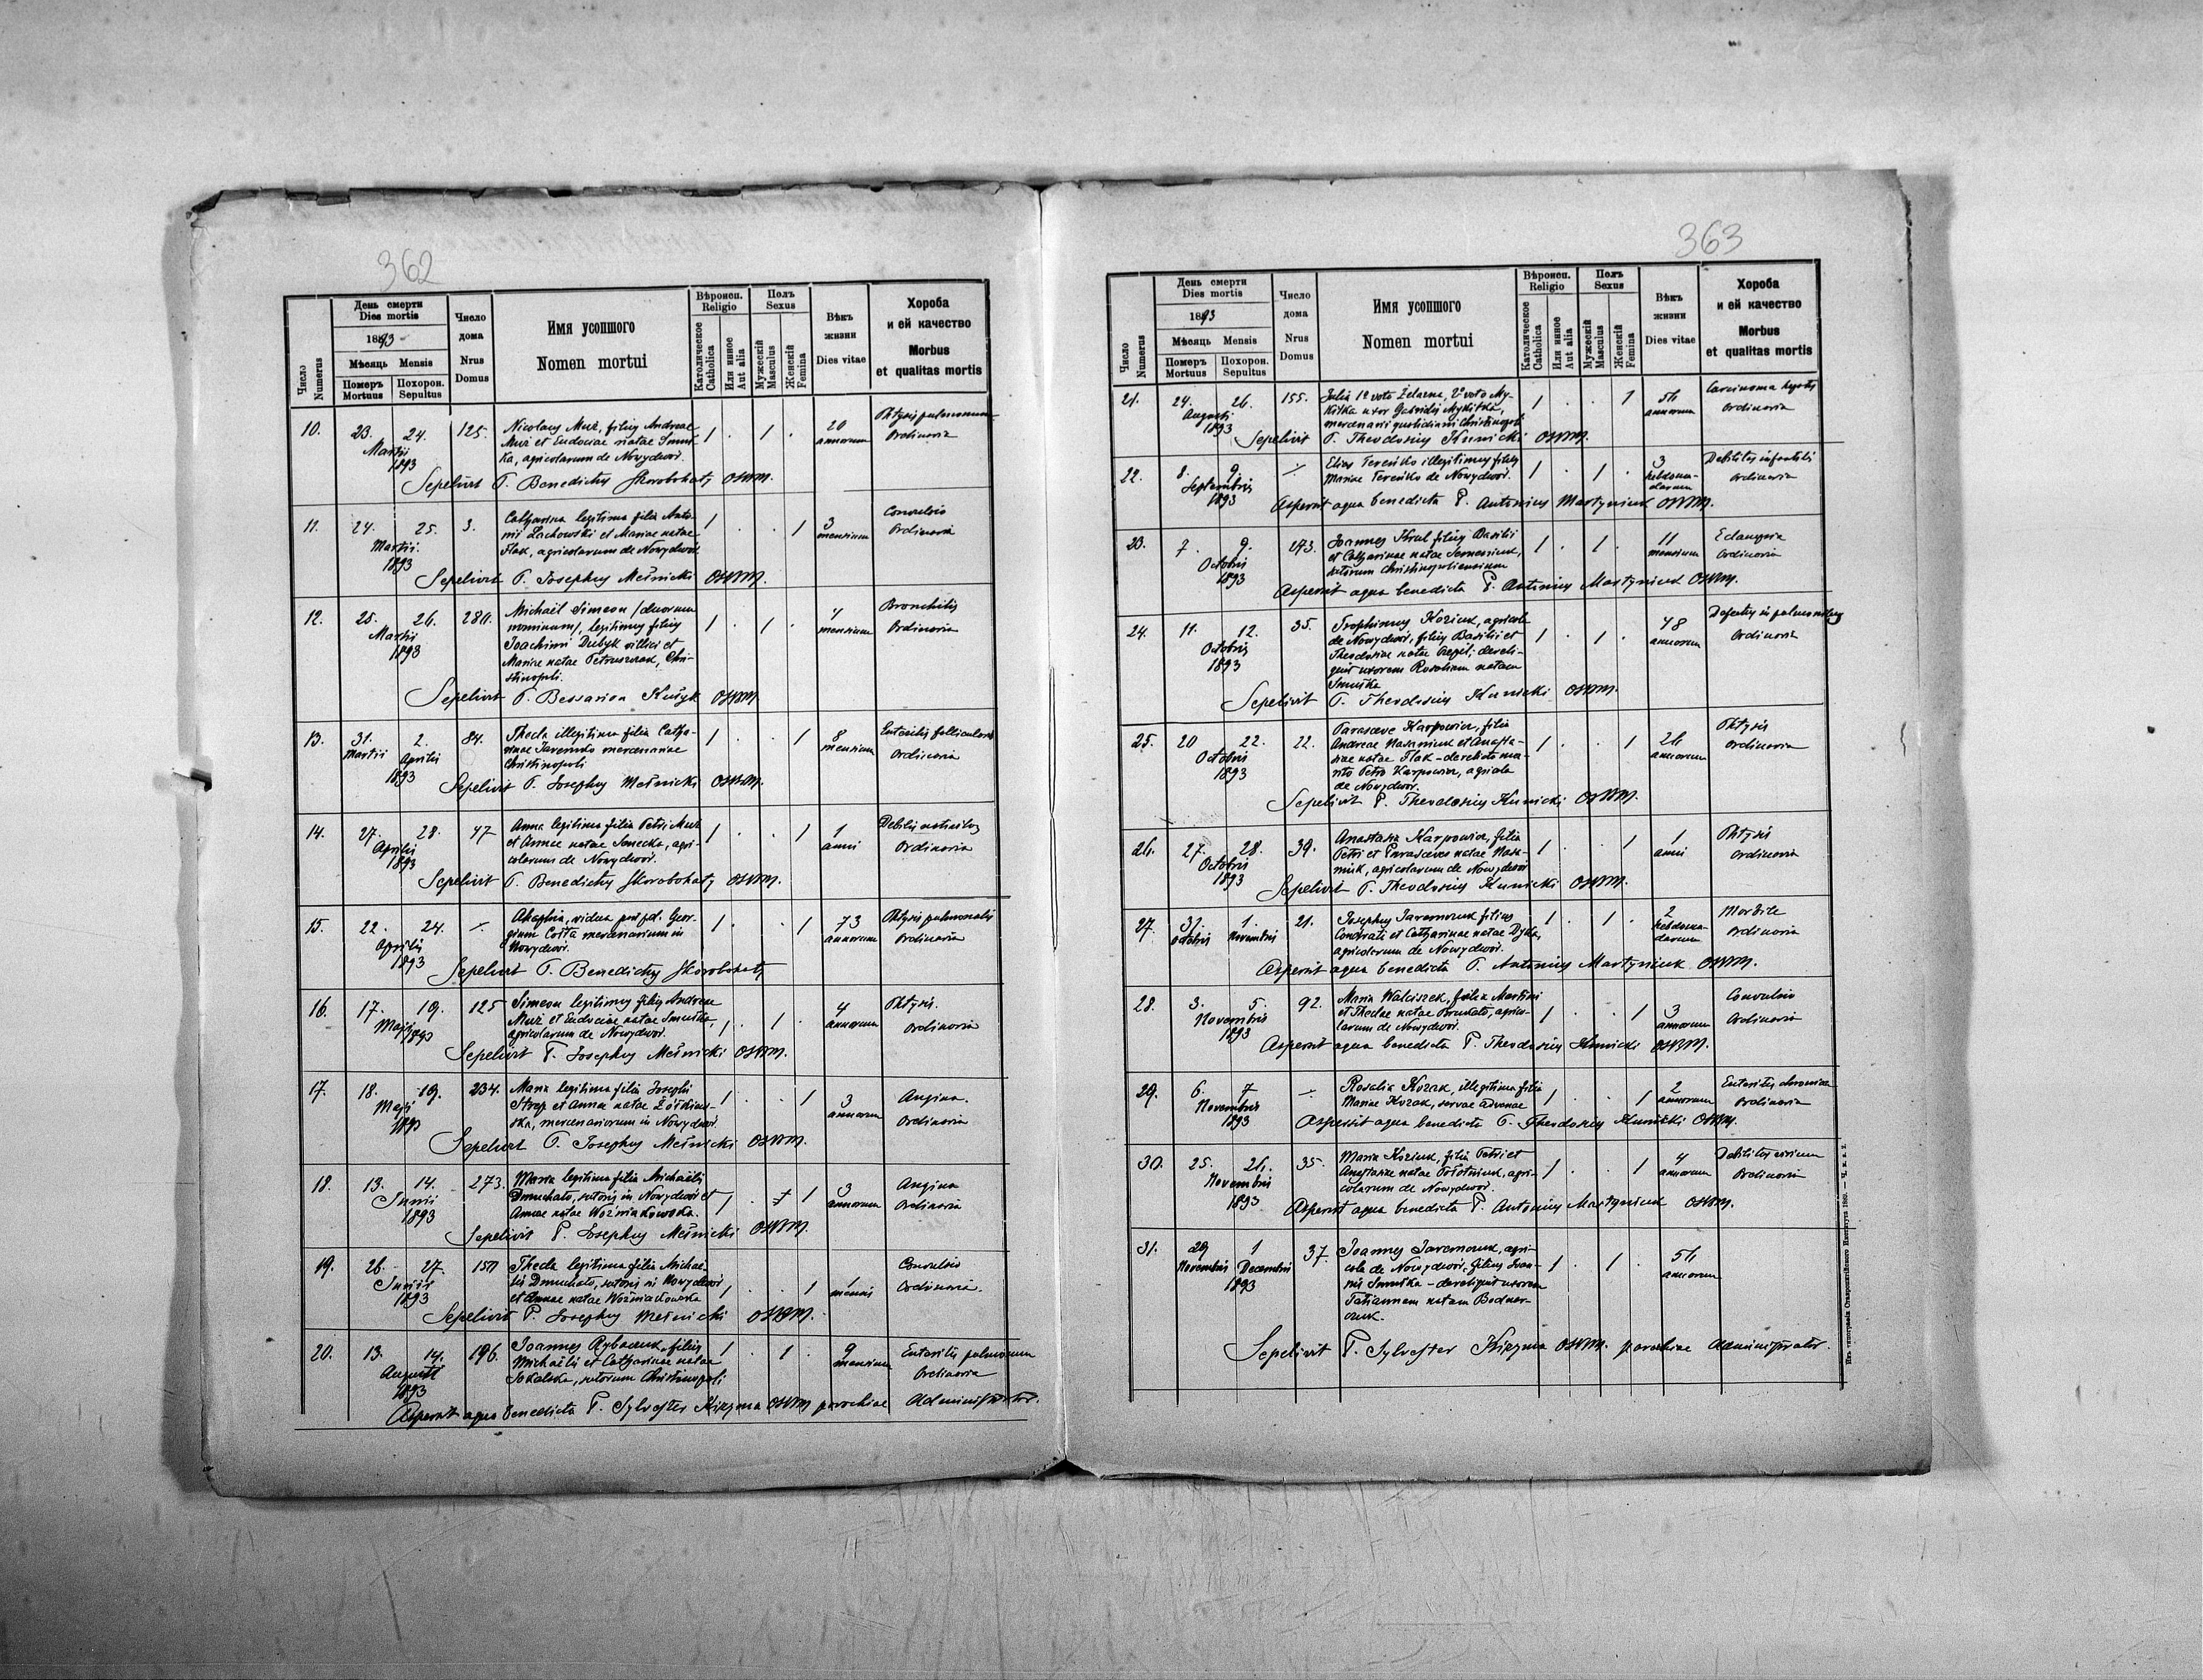 362
Число
Numerus
День смерти
Dies mortis
1893
Мѣсяць Mensis
Померъ
Mortuus
Похорон.
Sepultus
Число
дома
Nrus
Domus
Имя усопшого
Nomen mortui
Вѣроисп.
Religio
Католическое
Catholica
Или инное
Aut alia
Полъ
Sexus
Мужескій
Masculus
Женскій
Femina
Вѣкъ
жизни
Dies vitae
Хороба
и ей качество
Morbus
et qualitas mortis
10. 23. 24. 125. Nicolaus Muź, filius Andreae 1 . 1 . 20 Phtysis pulmonum
Martii Muź et Eudociae natae Smut- annorum Ordinaria
1893 ka, agricolarum de Nowydwór.
Sepelivit P. Benedictus Skorobohaty OSBM.
11. 24. 25. 3. Catharina legitima filia Anto- 1 . . 1 3 Convulsio
Martii nii Lachowski et Mariae natae mensium Ordinaria
1893 Flak, agricolarum de Nowydwór
Sepelivit P. Josephus Meśnicki OSBM.
12. 25. 26. Michaël Simeon /duorum 1 . 1 . mensium Bronchitis
Martii nominum/, legitimus filius Ordinaria
1893 Joachimi Dubyk villici et
Mariae natae Petruszczak, Chri-
stinopoli.
Sepelivit P. Bessarion OSBM.
13. 31. 2. 84. Thecla illegitima filia Catha- 1 . . 1 8
Martii Aprilis rinae mercenariae mensium Ordinaria
1893 Christinopoli
Sepelivit P. Josephus Meśnicki OSBM.
14. 27. 28. 47 Anna legitima filia Petri Muź 1 . . 1 1
Aprilis et Annae natae agri- anni Ordinaria
1893 colarum de Nowydwór.
Sepelivit P. Benedictus Skorobohaty OSBM.
15. 22. 24. vidua 1 . . 1 73 Phtysis pulmonalis
Aprilis mercenarium in annorum Ordinaria
1893 Nowydwór.
Sepelivit P. Benedictus Skorobohaty
16. 17. 19. 125 Simeon legitimus filius Andreae 4 Phtysis.
Maji 1893 Muź et Eudociae natae Smutka, 1 . 1 . annorum Ordinaria
agricolarum de Nowydwór.
Sepelivit P. Josephus Meśnicki OSBM.
17. 18. 19. 234. Maria legitima filia Josephi 1 . . 1 3 Angina.
Maji et Annae natae annorum Ordinaria
1893 ska, mercenariorum in Nowydwór.
Sepelivit P. Josephus Meśnicki OSBM.
18. 13. 14. 273. Maria legitima filia Michaëlis 3 Angina
Junii Dmuchało, sutoris in Nowydwór et 1 . 1 annorum Ordinaria
1893 Annae natae Woźniakowska.
Sepelivit P. Josephus Meśnicki OSBM.
19. 26. 27. Thecla legitima filia Michaë- Convulsio
Junii lis Dmuchało, sutoris in Nowydwór 1 . . 1 1 Ordinaria.
1893 et Annae natae Woźniakowska mensis
Sepelivit P. Josephus Meśnicki OSBM.
20. 13. 14. 196. Joannes Rybaczuk, filius 1 . 1 . 9 Enteritis pulmonum
Augusti Michaëlis et Catharinae natae mensium Ordinaria
1893 Sokalska, sutorum Christinopoli
Aspersit aqua benedicta P. Sylvester Kizyma OSBM parochiae Administrator.
363
Число
Numerus
День смерти
Dies mortis
1893
Мѣсяць Mensis
Померъ
Mortuus
Похорон.
Sepultus
Число
дома
Nrus
Domus
Имя усопшого
Nomen mortui
Вѣроисп.
Religio
Католическое
Catholica
Или инное
Aut alia
Полъ
Sexus
Мужескій
Masculus
Женскій
Femina
Вѣкъ
жизни
Dies vitae
Хороба
и ей качество
Morbus
et qualitas mortis
21. 24. 26. 155. Julia 1º voto Żelazna, 2º voto My- 1 . . 1 56 Carcinoma
Augusti kitka uxor Gabrielis Mykitka, annorum Ordinaria
1893 mercenarii quotidiani Christinopoli
Sepelivit P. Theodosius Kunicki OSBM.
22. 8. 9. Elias Tereńko illegitimus filius 1 . 1 . 3 Debilitas infantilis
Septembris Mariae Tereńko de Nowydwór. hebdoma- Ordinaria
1893 darum
Aspersit aqua benedicta P. Antonius Martyniuk OSBM.
23. 7. 9. 273. Joannes filius Basilii 1 . 1 . 11 Eclampsia
Octobris et Catharinae natae mensium Ordinaria
1893 sutorum Christinopoliensium
Aspersit aqua benedicta P. Antonius Martyniuk OSBM.
24. 11. 12. 35. Trophimus Koziuk, agricola 1 . 1 . 48
Octobris de Nowydwór, filius Basilii et annorum Ordinaria
1893 Theodosiae natae dereli-
quit uxorem Rosaliam natam
Smutka
Sepelivit P. Theodosius Kunicki OSBM.
25. 20 22. 22. Parasceve Karpowicz, filia 1 . . 1 26 Phtysis
Octobris Andreae Nasamiuk et Anasta- annorum Ordinaria
1893 siae natae Flak – derelicto ma-
rito Petro Karpowicz, agricola
de Nowydwór.
Sepelivit P. Theodosius Kunicki OSBM.
26. 27. 28. 39. Anastasia Karpowicz, filia 1 . . 1 1 Phtysis
Octobris Petri et Parasceves natae Nasa- anni Ordinaria
1893 miuk, agricolarum de Nowydwór
Sepelivit P. Theodosius Kunicki OSBM.
27. 31. 1. 21. Josephus Jaremczuk filius 1 . 1 . 2
Octobris Novembris Condrati et Catharinae natae Dyka, hebdoma- Ordinaria
agricolarum de Nowydwór. darum
Aspersit aqua benedicta P. Antonius Martyniuk OSBM.
28. 3. 5. 92. Maria Walciszek, filia Martini 1 . . 1 3 Convulsio
Novembris et Theclae natae agrico- annorum Ordinaria
1893 larum de Nowydwór.
Aspersit aqua benedicta P. Theodosius Kunicki OSBM.
29. 6. 7 Rosalia Kozak, illegitima filia 1 . . 1 2 Enteritis chronica
Novembris Mariae Kozak, servae advenae annorum Ordinaria
1893 Aspersit aqua benedicta P. Theodosius Kunicki OSBM.
30. 25. 26. 35. Maria Koziuk, filia Petri et 1 . . 1 4 Debilitas virium
Novembris Anastasiae natae agri- annorum Ordinaria
1893 colarum de Nowydwór.
Aspersit aqua benedicta P. Antonius Martyniuk OSBM.
31. 29 1 37. Joannes Jaremczuk, agri- 1 . 1 . 56
Novembris Decembris cola de Nowydwór, filius Joan- annorum
1893 nis Smutka – dereliquit uxorem
Tatiannam natam Bodnar-
czuk.
Sepelivit P. Sylvester Kizyma OSBM. parochiae Administrator.
Изъ типографіи Ставропигійского Института 1889.